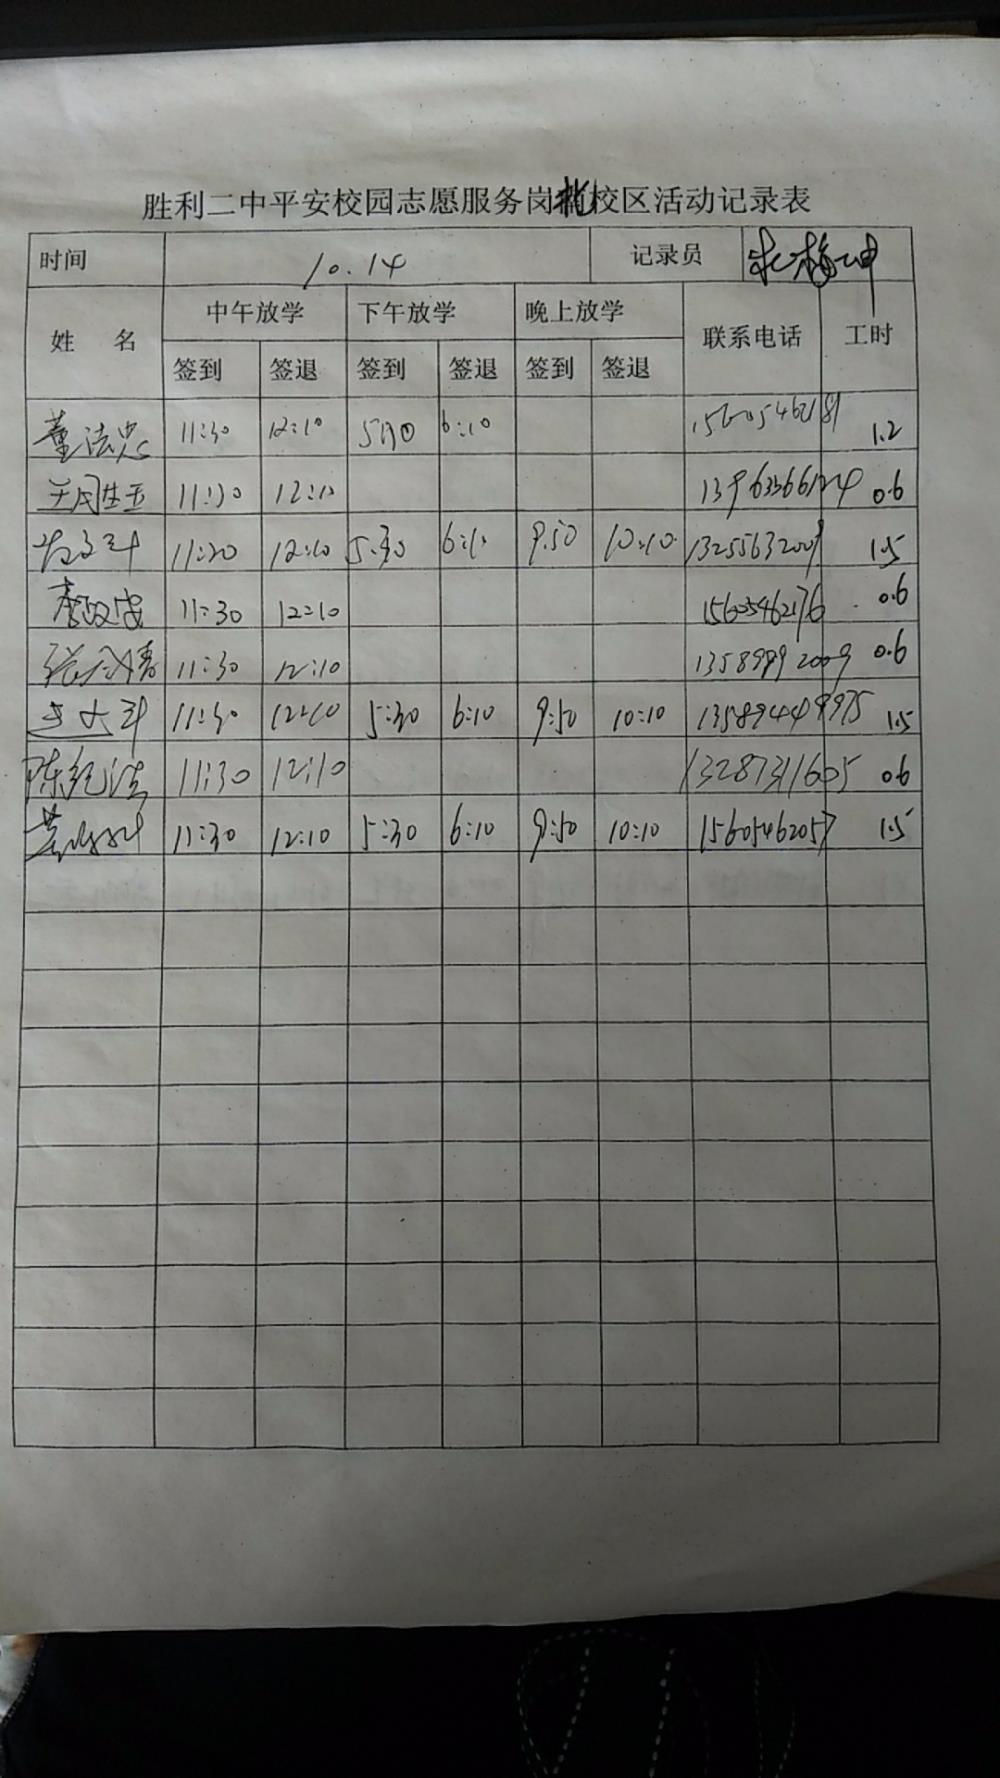 胜利二中平安校园志愿服务岗北校区活动记录表
时间 10.14 记录员
姓 名 中午放学 下午放学 晚上放学 联系电话 工时
签到 签退 签到 签退 签到 签退
董法忠 11:30 12:10 6:10 15605462181 1.2
11:30 12:10 0.6
11:30 12:10 5:30 6:10 9:50 10:10 13255632009 1.5
李政成 11:30 12:10 15605462176 0.6
11:30 12:10 13589892009 0.6
11:30 12:10 5:30 6:10 9:50 10:10 13589449975 1.5
陈纪浩 11:30 12:10 13287311605 0.6
11:30 12:10 5:30 6:10 9:50 10:10 15605462057 1.5